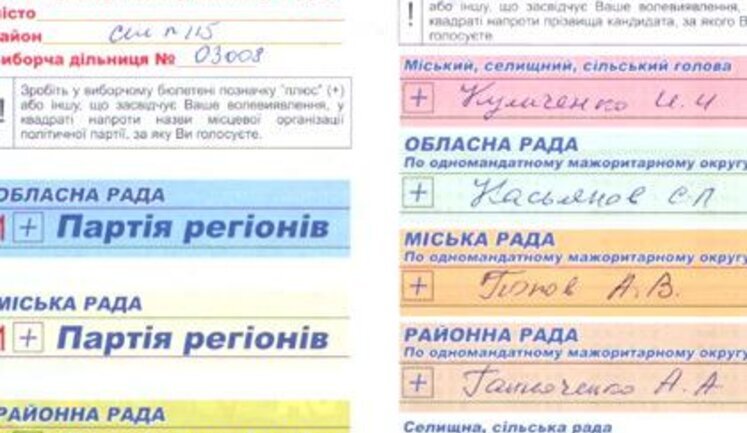 місто
район сш № 115
виборча дільниця № 03008
! Зробіть у виборчому бюлетені позначку "плюс" (+)
або іншу, що засвідчує Ваше волевиявлення, у
квадраті напроти назви місцевої організації
політичної партії, за яку Ви голосуєте.
ОБЛАСНА РАДА
+ Партія регіонів
МІСЬКА РАДА
+ Партія регіонів
РАЙОННА РАДА
! або іншу, що засвідчує Ваше волевиявлення,
квадраті напроти прізвища кандидата, за якого В
голосуєте.
Міський, селищний, сільський голова
+ Куличенко И. И
ОБЛАСНА РАДА
По одномандатному мажоритарному округу
+ Касьянов С. П
МІСЬКА РАДА
По одномандатному мажоритарному округу
+ Попов А. В.
РАЙОННА РАДА
По одномандатному мажоритарному округу
+ А. А
Селищна, сільська рада